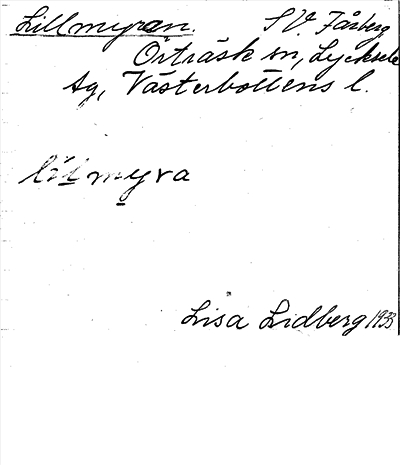 Lillmyran. S V. Fårberg
Örträsk sn, Lycksele
tg, Västerbottens l.
lilmyra
Lisa Lidberg 1933